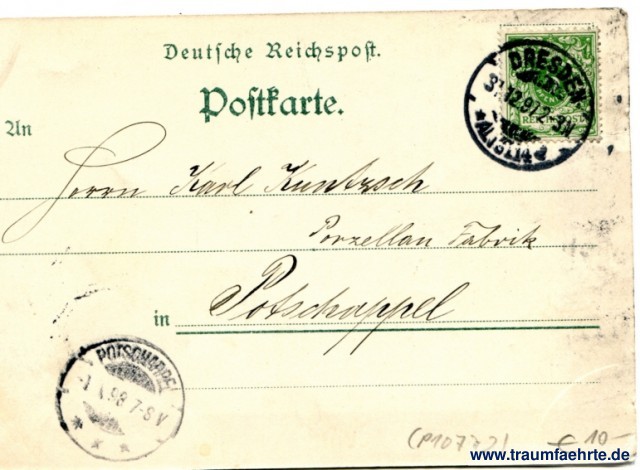 Deutsche Reichspost.
Postkarte.
DRESDEN
31.12.97.
ALTST. 14
REICHSPOST
An
Herrn Karl Kuntzsch
Porzellan Fabrik
in Potschappel
POTSCHAPPEL
1 1 98 7-8 V
(P10732)
€ 10-
www.traumfaehrte.de